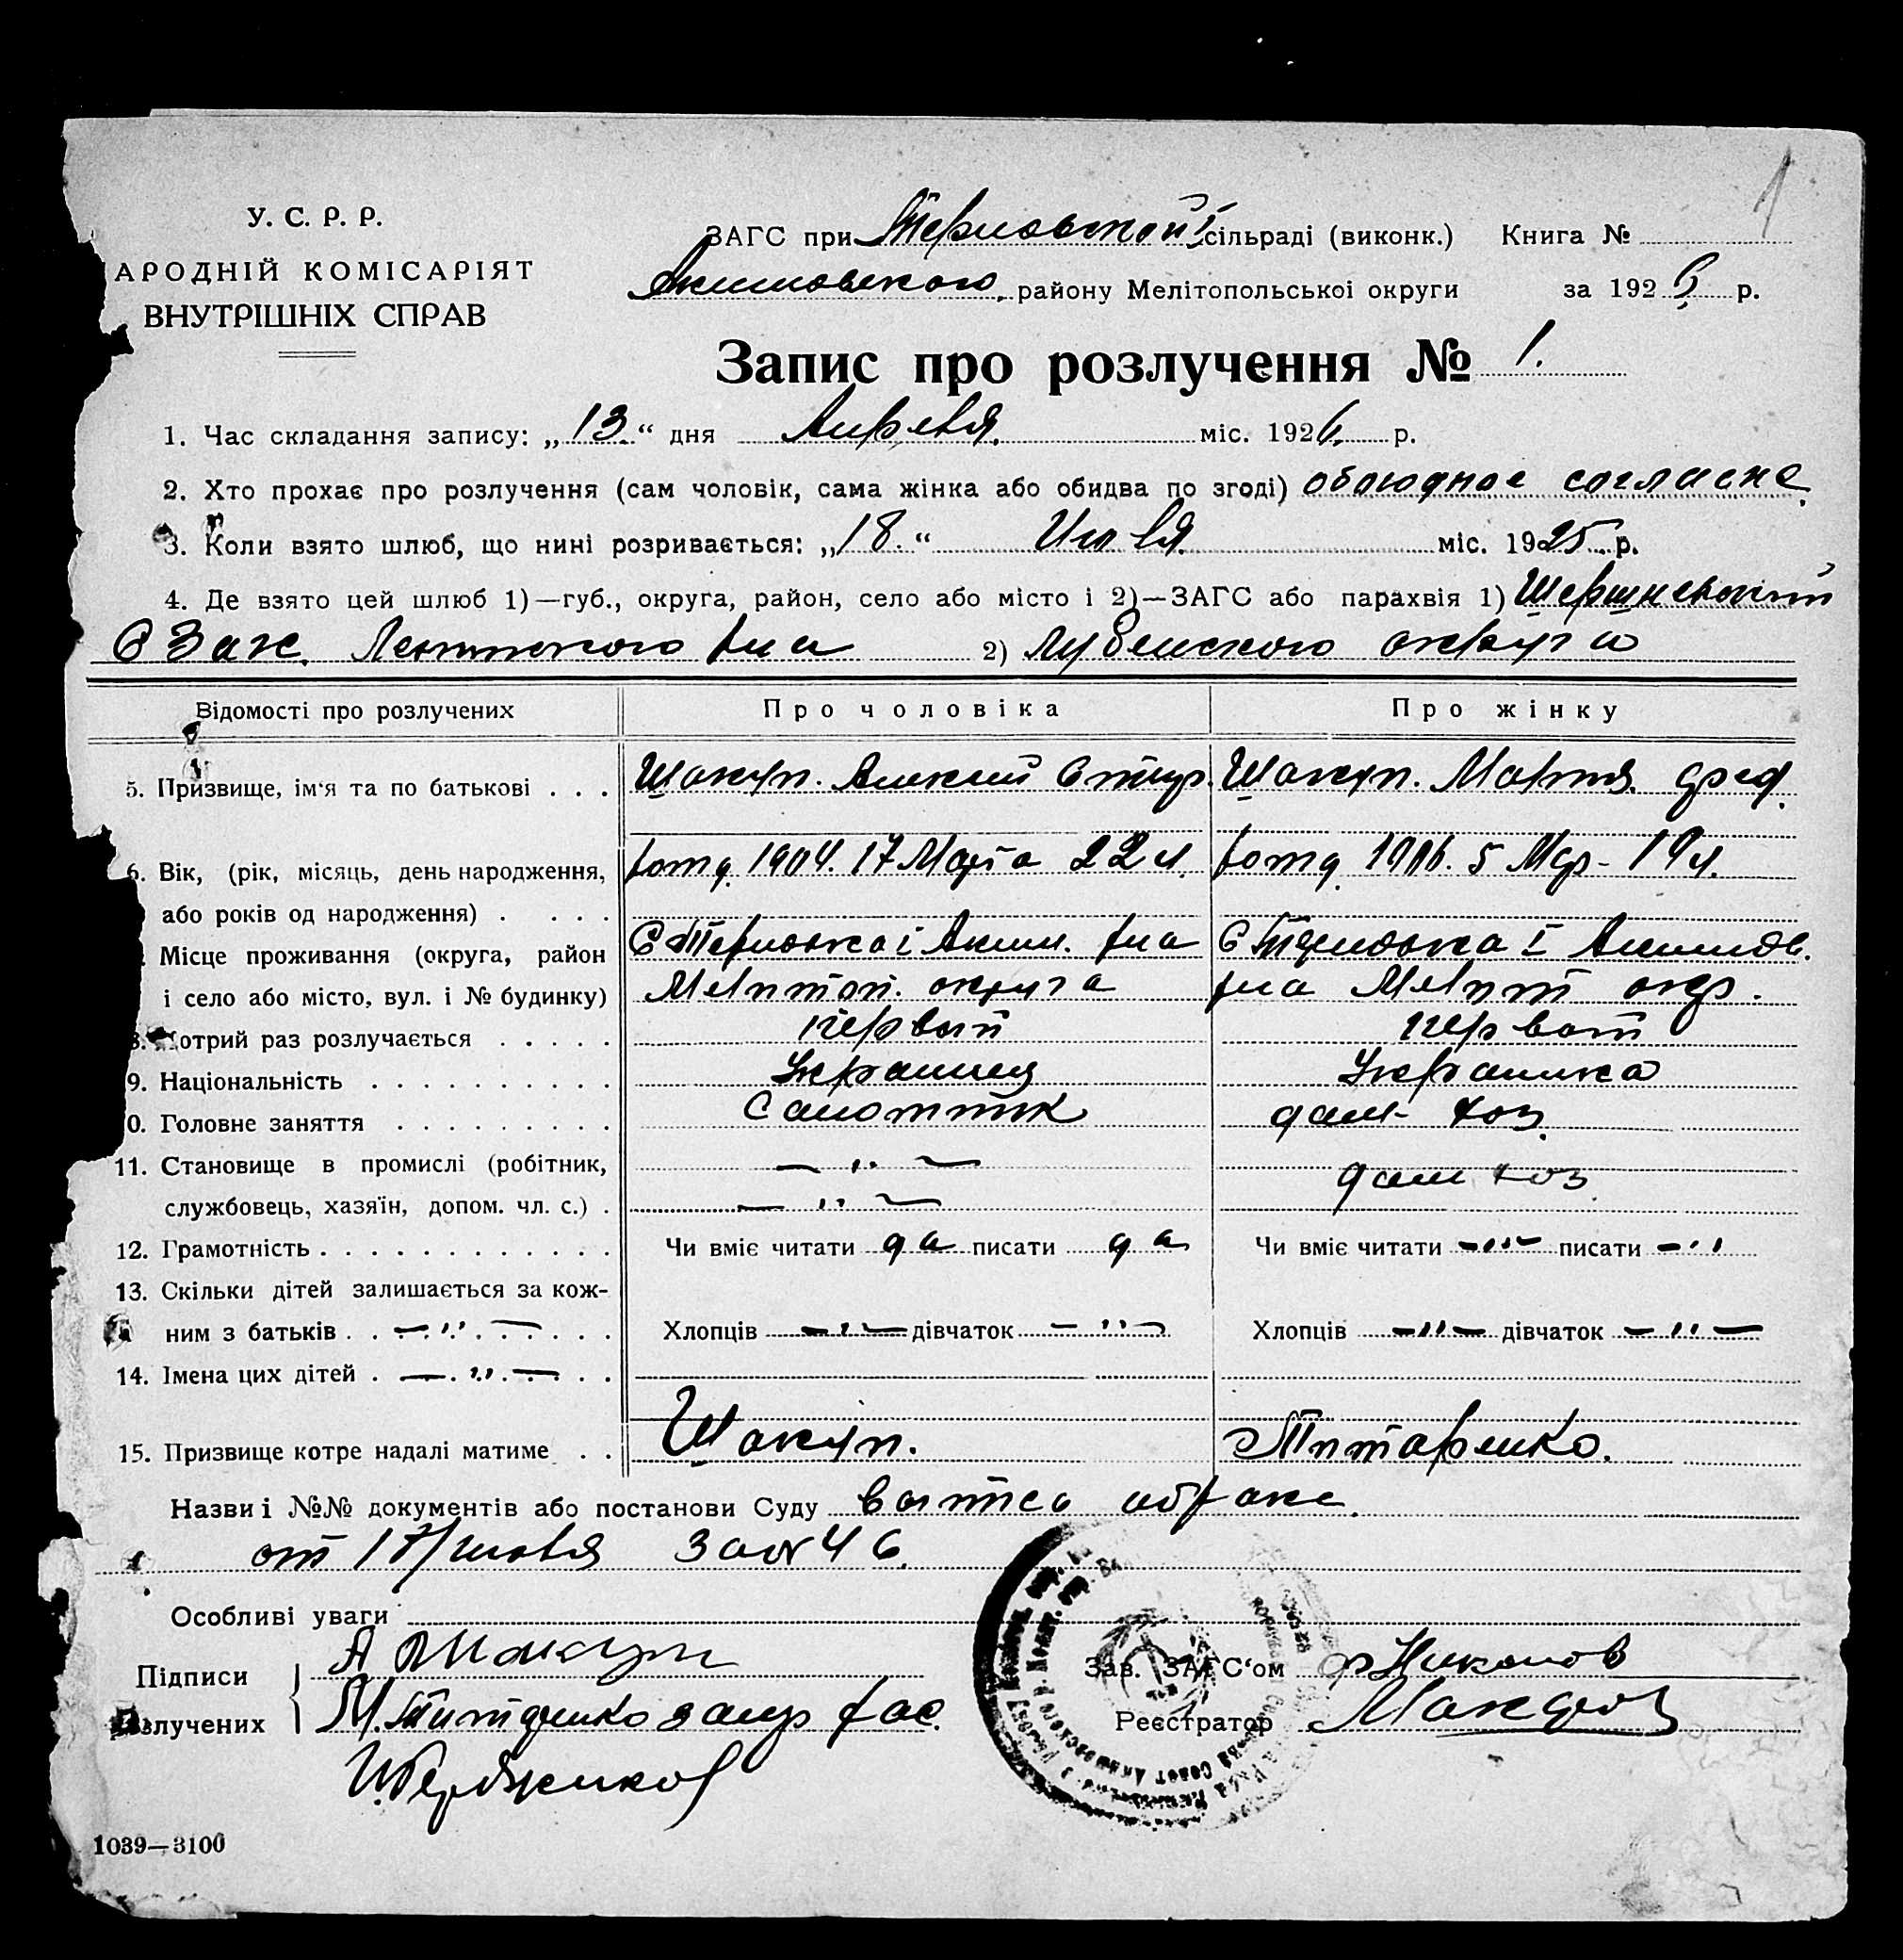 1
У. С. Р. Р.
АРОДНІЙ КОМІСАРІЯТ
ВНУТРІШНІХ СПРАВ
ЗАГС при Терновской I сільраді (виконк.) Книга №
Акимовского району Мелітопольської округи за 1926 р.
Запис про розлучення № 1.
1. Час складання запису: „13“ дня Апреля міс. 1926 р.
2. Хто прохає про розлучення (сам чоловік, сама жінка або обидва по згоді) обоюдное согласие
3. Коли взято шлюб, що нині розривається: „18“ Июля міс. 1925 р.
4. Де взято цей шлюб 1)—губ., округа, район, село або місто і 2)—ЗАГС або парахвія 1)
2) Лубенского округа
Відомості про розлучених Про чоловіка Про жінку
5. Призвище, ім‘я та по батькові . . . Шакун. Алексей Шакун. Мария.
6. Вік, (рік, місяць, день народження, 1904. 17 Марта 22 л. 1906. 5 Мар- 19 л.
або років од народження) . . . .
Місце проживання (округа, район С Терновка I Аким. р-на С Терновка I Акимов.
і село або місто, вул. і № будинку) Мелитоп. округа р-на Мелит окр.
отрий раз розлучається . . . . . первый первый
9. Національність . . . . . . . . . . Украинец Украинка
0. Головне заняття . . . . . . . . . дом- хоз.
11. Становище в промислі (робітник, — „ —
службовець, хазяїн, допом. чл. с.) . — „ — дом хоз.
12. Грамотність . . . . . . . . . . . . Чи вміє читати да писати да Чи вміє читати — „ — писати — „
13. Скільки дітей залишається за кож-
ним з батьків . . — „ — . . . Хлопців — „ — дівчаток — „ — Хлопців — „ — дівчаток — „ —
14. Імена цих дітей . — „ — . .
15. Призвище котре надалі матиме . . Шакун. Титаренко.
Назви і №№ документів або постанови Суду выпись о браке
от 17/июля за № 46.
Особливі уваги
Підписи А Шакун Зав. ЗАГС‘ом Никонов
злучених М. Титаренко Реєстратор
1039—3100